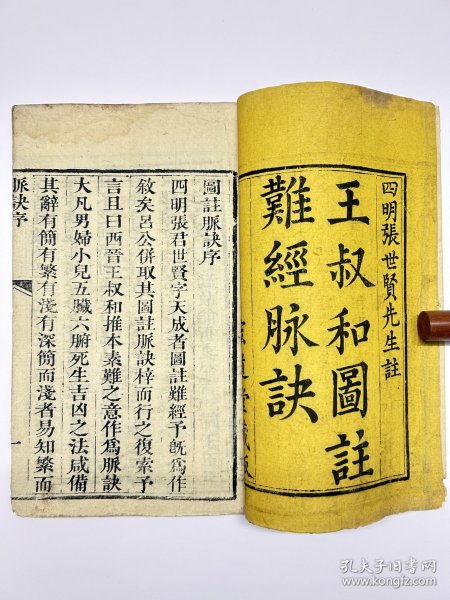 四明張世賢先生註
王叔和圖註
難經脉訣
圖註脈訣序
四明張君世賢字天成者圖註難經予旣爲作
敘矣呂公併取其圖註脈訣梓而行之復索予
言且曰西晉王叔和推本素難之意作爲脈訣
大凡男婦小兒五臟六腑死生吉凶之法咸備
其辭有簡有繁有淺有深簡而淺者易知繁而
脈訣序
一
孔夫子旧书网
www.kongfz.com